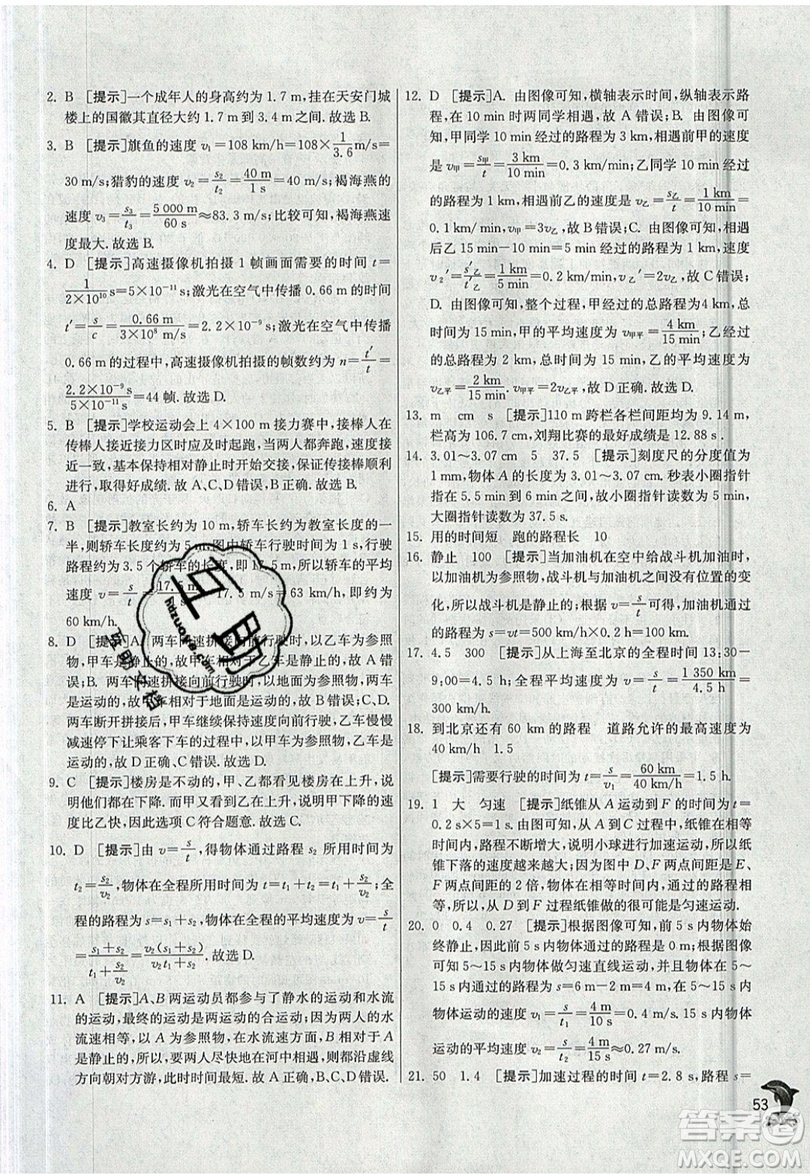 2. B [提示]一个成年人的身高约为 1.7 m,挂在天安门城
楼上的国徽其直径大约 1.7 m 到 3.4 m 之间. 故选 B.
3. B [提示]旗鱼的速度 v₁=108 km/h=108×1/3.6 m/s=
30 m/s;猎豹的速度 v₂=s₂/t₂=40 m/1 s=40 m/s;褐海燕的
速度 v₃=s₃/t₃=5 000 m/60 s≈83.3 m/s;比较可知,褐海燕速
度最大. 故选 B.
4. D [提示]高速摄像机拍摄 1 帧画面需要的时间 t=
1/(2×10¹⁰) s=5×10⁻¹¹ s;激光在空气中传播 0.66 m 的时间
t′=s/c=0.66 m/(3×10⁸ m/s)=2.2×10⁻⁹ s;激光在空气中传播
0.66 m 的过程中,高速摄像机拍摄的帧数约为 n=t′/t=
2.2×10⁻⁹ s/(5×10⁻¹¹ s)=44 帧. 故选 D.
5. B [提示]学校运动会上 4×100 m 接力赛中,接棒人在
传棒人跑到接力区时应及时起跑,当两人都奔跑,速度接
近一致,基本保持相对静止时开始,保证传接棒顺利
进行,取得好成绩. 故 A、C、D 错误,B 正确. 故选 B.
6. A
7. B [提示]教室长约为 10 m,轿车长约为教室长度的一
半,则轿车车长约为 5 m,由图轿车行驶时间为 1 s,行驶
路程约为 3.5 个轿车长度,即 17.5 m,所以轿车行驶的
速度 v=s/t=17.5 m/1 s=17.5 m/s=63 km/h,即约为
60 km/h.
8. D [提示]A. 两车匀速拼接向前行驶时,以乙车为参照
物,甲车是静止的,故 A 错误;
B. 两车匀速拼接向前行驶时,以地面为参照物,两车
是运动的,故相对于地面是运动的,故 B 错误;C、D.
两车断开拼接后,甲车继续保持速度向前行驶,乙车慢慢
减速停下让乘客下车的过程中,以甲车为参照物,乙车是
运动的,故 D 正确,C 错误. 故选 D.
9. C [提示]楼房是不动的,甲、乙都看见楼房在上升,说明
他们都在下降. 而甲看到乙在上升,说明甲下降的速
度比乙快,因此选项 C 符合题意. 故选 C.
10. D [提示]由 v=s/t,得物体通过路程 s₂ 所用时间为
t₂=s₂/v₂,物体在全程所用的时间 t=t₁+t₂=t₁+s₂/v₂;全
程的路程为 s=s₁+s₂,物体在全程的平均速度为 v=s/t
=(s₁+s₂)/(t₁+s₂/v₂)=v₂(s₁+s₂)/(v₂t₁+s₂). 故选 D.
11. A [提示]A、B 两运动员都参与了静水的运动和水流
的运动,最终的运动是两运动的合运动;因两人的水
流速一样,若以水流为参照物,两人在水中都做匀速运
动,因此,两人要尽快地在河中相遇,都沿虚线
方向朝对方游,此时时间最短. 故 A 正确,B、C、D 错误.
12. D [提示]A. 由图像可知,横轴表示时间,纵轴表示路
程,在 10 min 时两同学相遇,故 A 错误;B. 由图像
可知,甲同学相遇时,经过的路程为 3 km,相遇前的速度
v甲=s甲/t=3 km/10 min=3 km/10 min;乙同学相遇时,经
过的路程为 1 km,相遇前的速度 v乙=s乙/t=1 km/10 min=
1 km/10 min,v甲=3v乙,故 B 错误;C. 由图像可知,相遇
后乙 15 min−10 min=5 min 经过的路程为 1 km,速度
v₂′=s′乙/t′乙=1 km/5 min,v乙′=2v乙,故 C 错误;
D. 由图像可知,整个过程,甲经过的总路程为4 km,总
时间为 15 min,甲的平均速度为 v甲平=4 km/15 min;乙经过
的总路程为 2 km,总时间为 15 min,乙的平均速度为
v乙平=2 km/15 min,v甲平=2v乙平,故 D 正确. 故选 D.
13. m cm s [提示]110 m 跨栏各栏间距均为 9.14 m,
栏高为 106.7 cm,刘翔比赛的最好成绩是 12.88 s.
14. 3.01~3.07 cm 5 37.5 [提示]刻度尺的分度值为
1 mm,物体 A 的长度为 3.01~3.07 cm. 秒表小圈指针
指在 5.5 min 到 6 min 之间,故小圈指针读数为 5 min,
大圈指针读数为 37.5 s.
15. 用的时间短 跑的路程长 10
16. 静止 100 [提示]当加油机在空中给战斗机加油时,
以加油机为参照物,战斗机与加油机没有位置的变
化,所以战斗机是静止的. 由 v=s/t,得加油机飞行的路
程为 s=vt=500 km/h×0.2 h=100 km.
17. 4.5 300 [提示]从上海至北京的全程时间 13:30−
9:00=4.5 h;全程平均速度 v=s/t=1 350 km/4.5 h=
300 km/h.
18. 到北京还有 60 km 的路程 道路允许的最高速度为
40 km/h 1.5
[提示]需要行驶的时间为 t=s/v₁=60 km/(40 km/h)=1.5 h.
19. 1 大 匀速 [提示]纸锥从 A 运动到 F 的时间为 t=
0.2 s×5=1 s. 由图可知,从 A 到 C 过程中,纸锥在相
等时间内,路程不断增大,说明小球进行加速运动,所以纸
锥下落的速度越来越大;因为 D、F 两点间距是 E、F
两点间距的 2 倍,物体从 C 到 F 过程,在相等的时间内
经过相等路程,所以物体在 C 到 F 过程纸锥做的很可能是匀速运动.
20. 0 0.4 0.27 [提示]根据图像可知,前 5 s 内物体始
终静止,因此前 5 s 内物体的运动速度为 0;5~15 s 内
物体做匀速直线运动,路程为 s=6 m−2 m=4 m,5~15 s 内
物体运动的速度 v₁=s/t₁=4 m/10 s=0.4 m/s;15 s 内物体
运动的平均速度 v₂=s/t₂=4 m/15 s≈0.27 m/s.
21. 50 1.4 [提示]加速过程的时间 t=2.8 s,路程 s=
53
互助
huzuoye.com
互助文档
答案圈
MXQE.COM